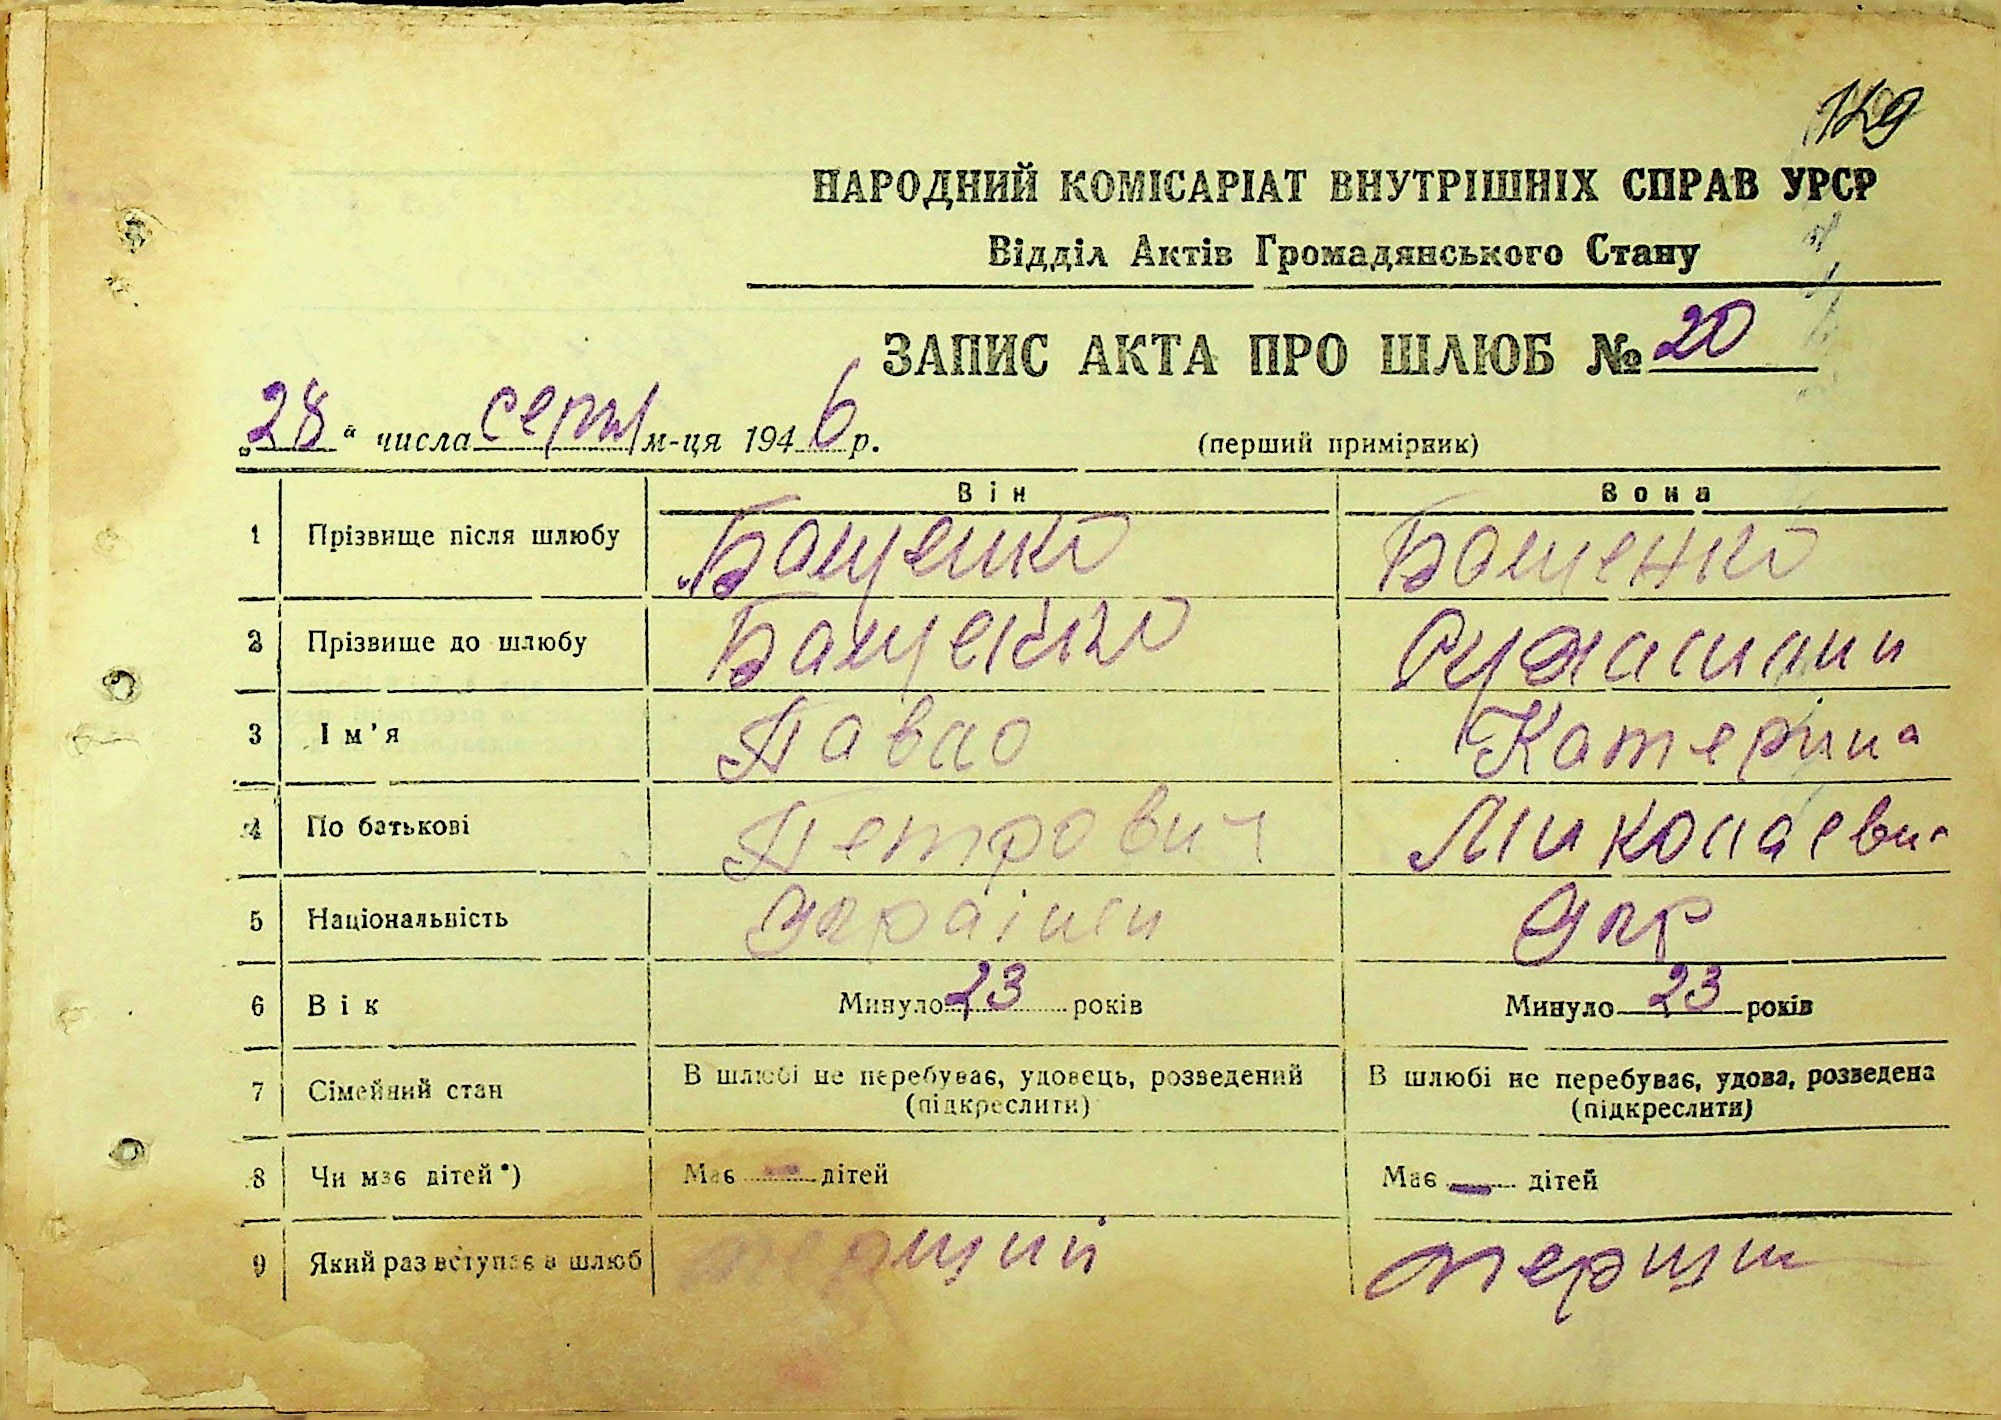 129
НАРОДНИЙ КОМІСАРІАТ ВНУТРІШНІХ СПРАВ УРСР
Відділ Актів Громадянського Стану
ЗАПИС АКТА ПРО ШЛЮБ № 20
„28“ числа серпн м-ця 1946 р. (перший примірник)
Він Вона
1 Прізвище після шлюбу Бащенко Бащенко
2 Прізвище до шлюбу Бащенко
3 Ім’я Павло Катерина
4 По батькові Петрович Миколаевна
5 Національність Українец Укр
6 Вік Минуло 23 років Минуло 23 років
7 Сімейний стан В шлюбі не перебуває, удовець, розведений В шлюбі не перебуває, удова, розведена
(підкреслити) (підкреслити)
8 Чи має дітей*) Має — дітей Має — дітей
9 Який раз вступає в шлюб перший перший